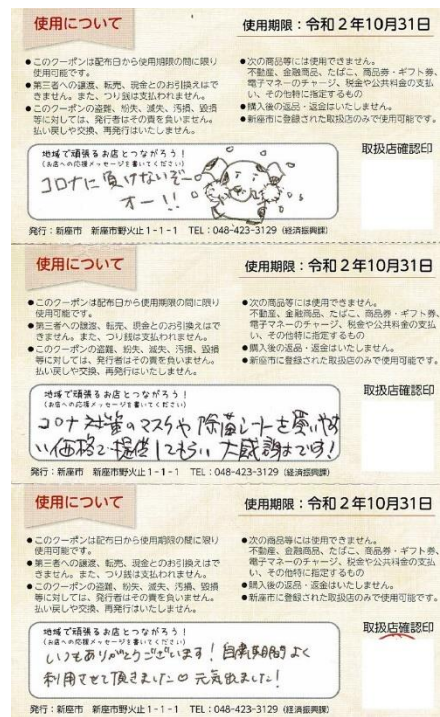 使用について
使用期限：令和2年10月31日
●このクーポンは配布日から使用期限の間に限り
使用可能です。
●第三者への譲渡、転売、現金とのお引換えはで
きません。また、つり銭は支払われません。
●このクーポンの盗難、紛失、滅失、汚損、毀損
等に対しては、発行者はその責を負いません。
払い戻しや交換、再発行はいたしません。
●次の商品等には使用できません。
不動産、金融商品、たばこ、商品券・ギフト券、
電子マネーのチャージ、税金や公共料金の支払
い、その他特に指定するもの
●購入後の返品・返金はいたしません。
●新座市に登録された取扱店のみで使用可能です。
地域で頑張るお店とつながろう！
(お店への応援メッセージを書いてください)
コロナに負けないぞー
オー!!
取扱店確認印
発行：新座市 新座市野火止1-1-1 TEL：048-423-3129（経済振興課）
使用について
使用期限：令和2年10月31日
●このクーポンは配布日から使用期限の間に限り
使用可能です。
●第三者への譲渡、転売、現金とのお引換えはで
きません。また、つり銭は支払われません。
●このクーポンの盗難、紛失、滅失、汚損、毀損
等に対しては、発行者はその責を負いません。
払い戻しや交換、再発行はいたしません。
●次の商品等には使用できません。
不動産、金融商品、たばこ、商品券・ギフト券、
電子マネーのチャージ、税金や公共料金の支払
い、その他特に指定するもの
●購入後の返品・返金はいたしません。
●新座市に登録された取扱店のみで使用可能です。
地域で頑張るお店とつながろう！
(お店への応援メッセージを書いてください)
コロナ対策のマスクや除菌シートを買いやす
い価格で提供してもらい大感謝です!
取扱店確認印
発行：新座市 新座市野火止1-1-1 TEL：048-423-3129（経済振興課）
使用について
使用期限：令和2年10月31日
●このクーポンは配布日から使用期限の間に限り
使用可能です。
●第三者への譲渡、転売、現金とのお引換えはで
きません。また、つり銭は支払われません。
●このクーポンの盗難、紛失、滅失、汚損、毀損
等に対しては、発行者はその責を負いません。
払い戻しや交換、再発行はいたしません。
●次の商品等には使用できません。
不動産、金融商品、たばこ、商品券・ギフト券、
電子マネーのチャージ、税金や公共料金の支払
い、その他特に指定するもの
●購入後の返品・返金はいたしません。
●新座市に登録された取扱店のみで使用可能です。
地域で頑張るお店とつながろう！
(お店への応援メッセージを書いてください)
いつもありがとうございます! 自粛期間よく
利用させて頂きました♡元気出ました!
取扱店確認印
発行：新座市 新座市野火止1-1-1 TEL：048-423-3129（経済振興課）